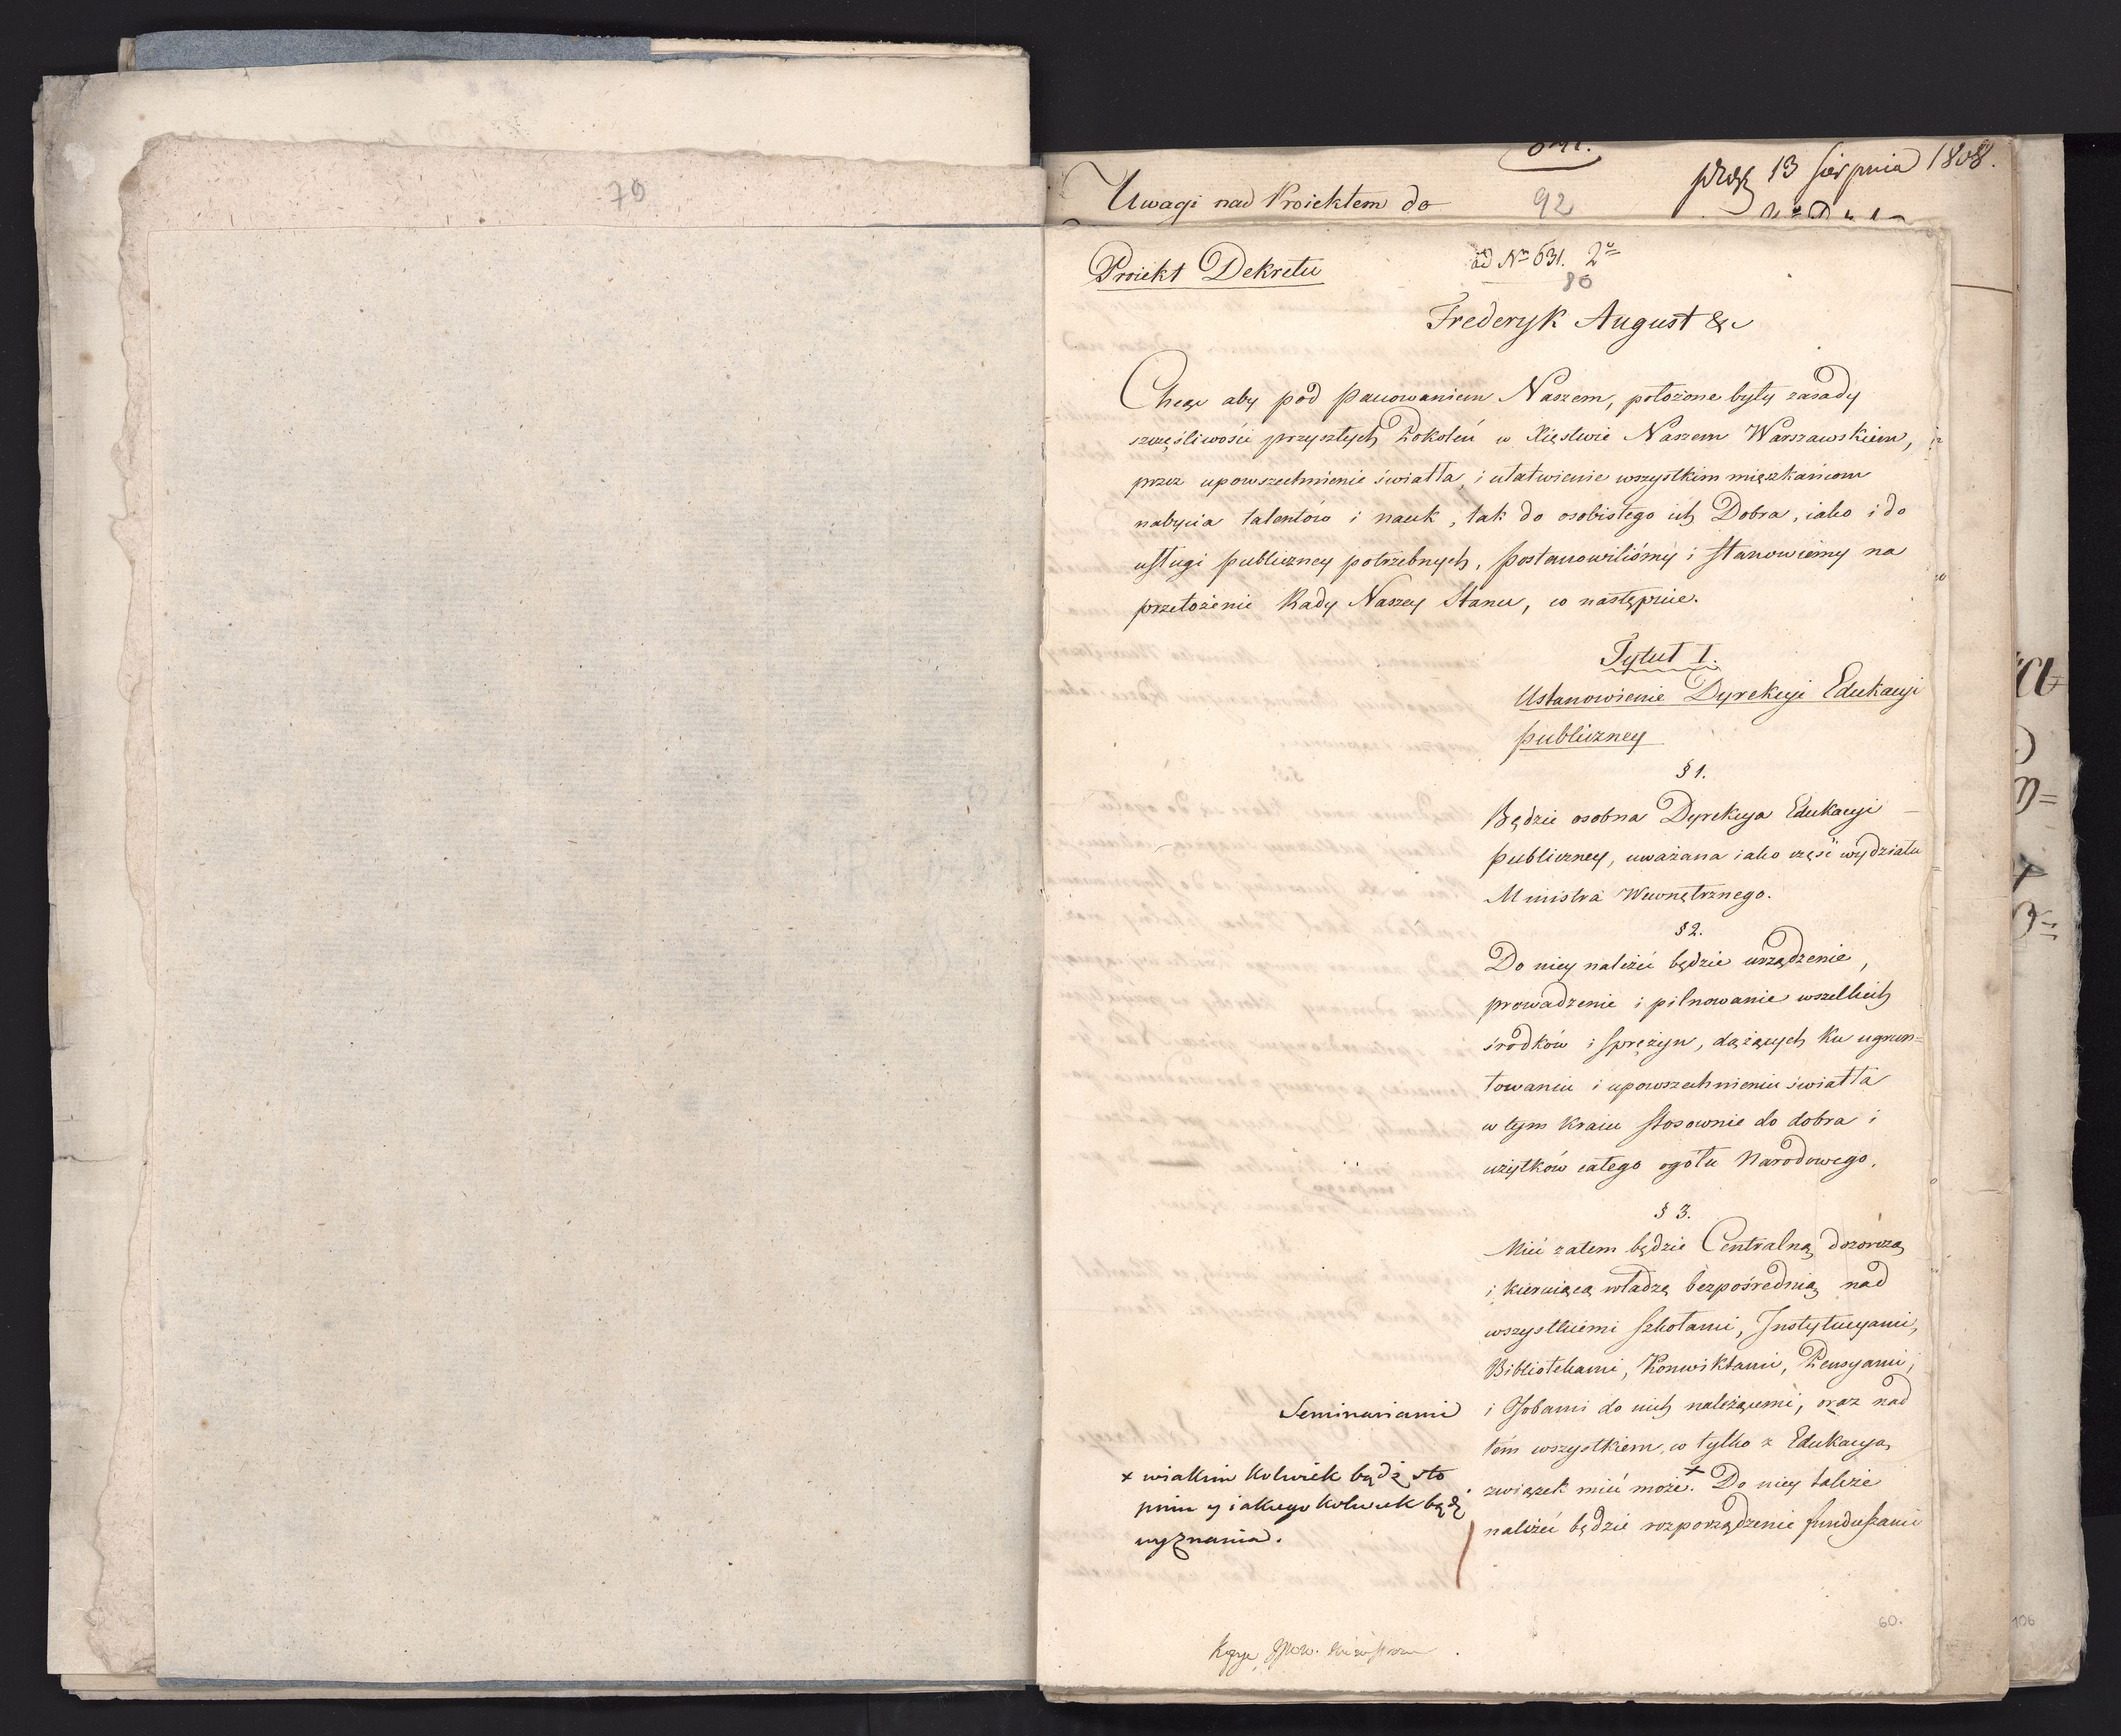 79
Uwagi nad Proiektem do
92
13 Sierpnia 1808.
Proiekt Dekretu
ad Nro 631. 2o
80
Frederyk August &c
Chcąc aby pod panowaniem Naszem, położone były zasady
szczęśliwości przyszłych Pokoleń w Xięstwie Naszem Warszawskiem,
przez upowszechnienie światła, i ułatwienie wszystkim mięszkańcom
nabycia talentów i nauk, tak do osobistego ich Dobra, iako i do
usługi publiczney potrzebnych, postanowiliśmy i stanowiemy na
przełożenie Rady Naszey Stanu, co następuie.
Tytuł I.
Ustanowienie Dyrekcyi Edukacyi
publiczney
§ 1.
Będzie osobna Dyrekcya Edukacyi
publiczney, uważana iako część wydziału
Ministra Wewnętrznego.
§ 2.
Do niey należeć będzie urządzenie,
prowadzenie i pilnowanie wszelkich
środków i sprężyn, dążących ku ugrun=
towaniu i upowszechnieniu światła
w tym kraiu stosownie do dobra i
użytków całego ogółu Narodowego.
§ 3.
Mieć zatem będzie Centralną dozorczą
i kieruiącą władzę bezpośrednią nad
wszystkiemi szkołami, Instytucyami,
Bibliotekami, Konwiktami, Pensyami,
Seminariami
i Osobami do nich należącemi, oraz nad
tém wszystkiem, co tylko z Edukacyą
związek mieć może. + Do niey także
należeć będzie rozporządzenie funduszami
+ w iakim kolwiek bądź sto
pniu y iakiego kolwiek bądź
wyznania.
60.
106